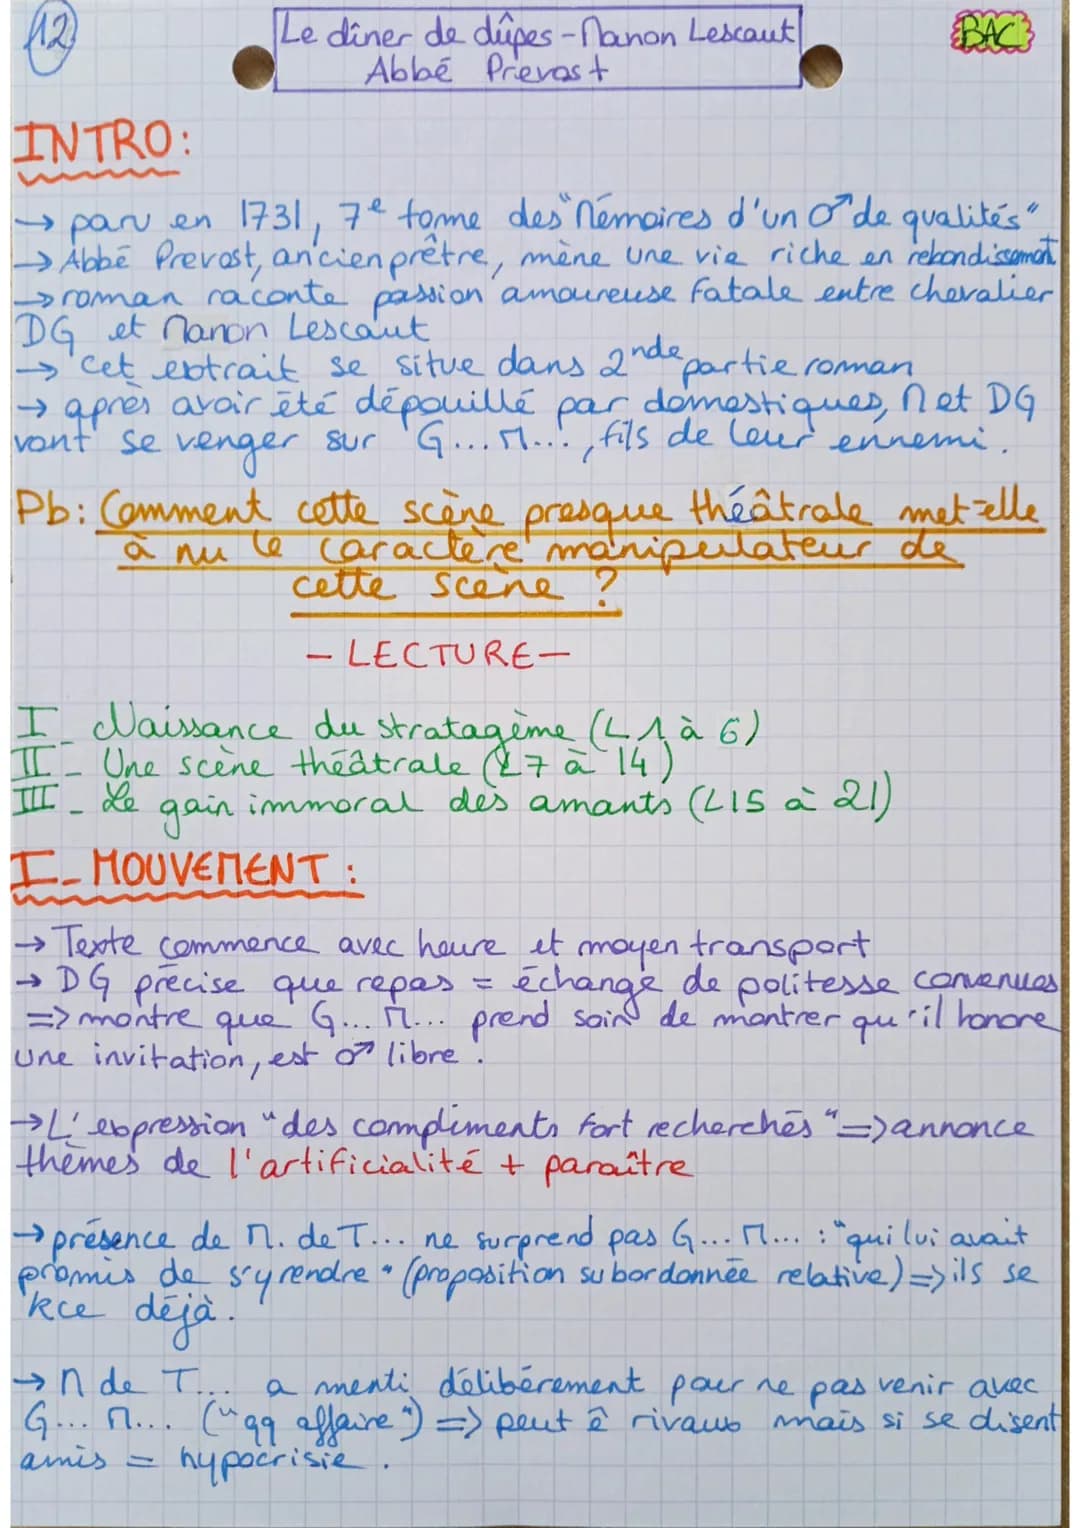 12
Le dîner de dûpes - Manon Lescaut
Abbé Prevost
BAC
INTRO:
→ paru en 1731, 7e tome des "Mémoires d'un ♂ de qualités"
→ Abbé Prevost, ancien prêtre, mène une vie riche en rebondissement
→ roman raconte passion amoureuse fatale entre chevalier
DG et Manon Lescaut
→ Cet extrait se situe dans 2nde partie roman
→ après avoir été dépouillé par domestiques, M et DG
vont se venger sur G...M..., fils de leur ennemi.
Pb: Comment cette scène presque théâtrale met-elle
à nu le caractère manipulateur de
cette scène ?
- LECTURE -
I_ Naissance du stratagème (L 1 à 6)
II_ Une scène théâtrale (L7 à 14)
III_ Le gain immoral des amants (L15 à 21)
I_ MOUVEMENT :
→ Texte commence avec heure et moyen transport
→ DG précise que repas = échange de politesse convenues
=> montre que G...M... prend soin de montrer qu'il honore
une invitation, est ♂ libre.
→ L'expression "des compliments fort recherchés" => annonce
thèmes de l'artificialité + paraître
→ présence de M. de T... ne surprend pas G...M... : "qui lui avait
promis de s'y rendre" (proposition subordonnée relative) => ils se
kce déjà.
→ M de T... a menti délibérement pour ne pas venir avec
G...M... ("qq affaire") => peut ê rivaux mais si se disent
amis = hypocrisie.